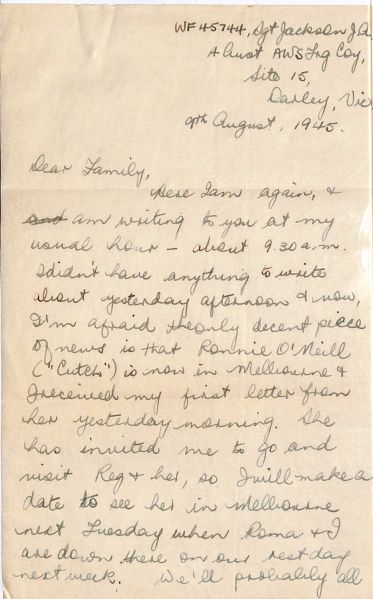 WF45744, Sgt Jackson J.A
4 Aust AWS Trg Coy,
Site 15,
Darley, Vic
9th August, 1945.
Dear Family,
Here I am again, &
and am writing to you at my
usual hour - about 9.30 a.m.
I didn't have anything to write
about yesterday afternoon & now,
I'm afraid the only decent piece
of news is that Ronnie O'Neill
("Cutch") is now in Melbourne &
I received my first letter from
her yesterday morning. She
has invited me to go and
visit Reg & her, so I will make a
date to see her in Melbourne
next Tuesday when Roma & I
are down there on our rest day
next week. We'll probably all